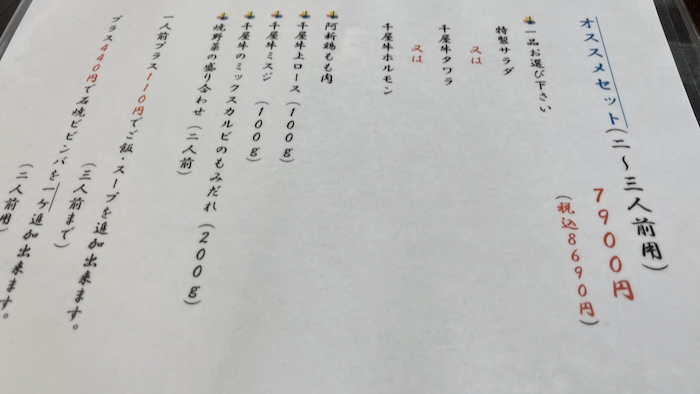 オススメセット(二～三人前用)
7900円
(税込8690円)
一品お選び下さい
特製サラダ
又は
千屋牛タワラ
又は
千屋牛ホルモン
阿新鶏もも肉
千屋牛上ロース (100g)
千屋牛ミスジ (100g)
千屋牛のミックスカルビのもみだれ (200g)
焼野菜の盛り合わせ (二人前)
一人前プラス110円でご飯・スープを追加出来ます。
(三人前まで)
プラス440円で石焼ビビンバを一ケ追加出来ます。
(二人前用)